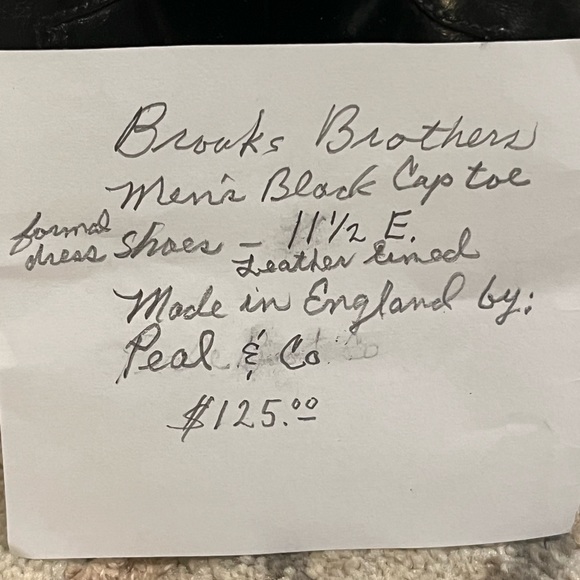 Brooks Brothers
Men's Black Cap toe
formal dress shoes - 11 1/2 E.
Leather Lined
Made in England by:
Peal & Co
$125.00